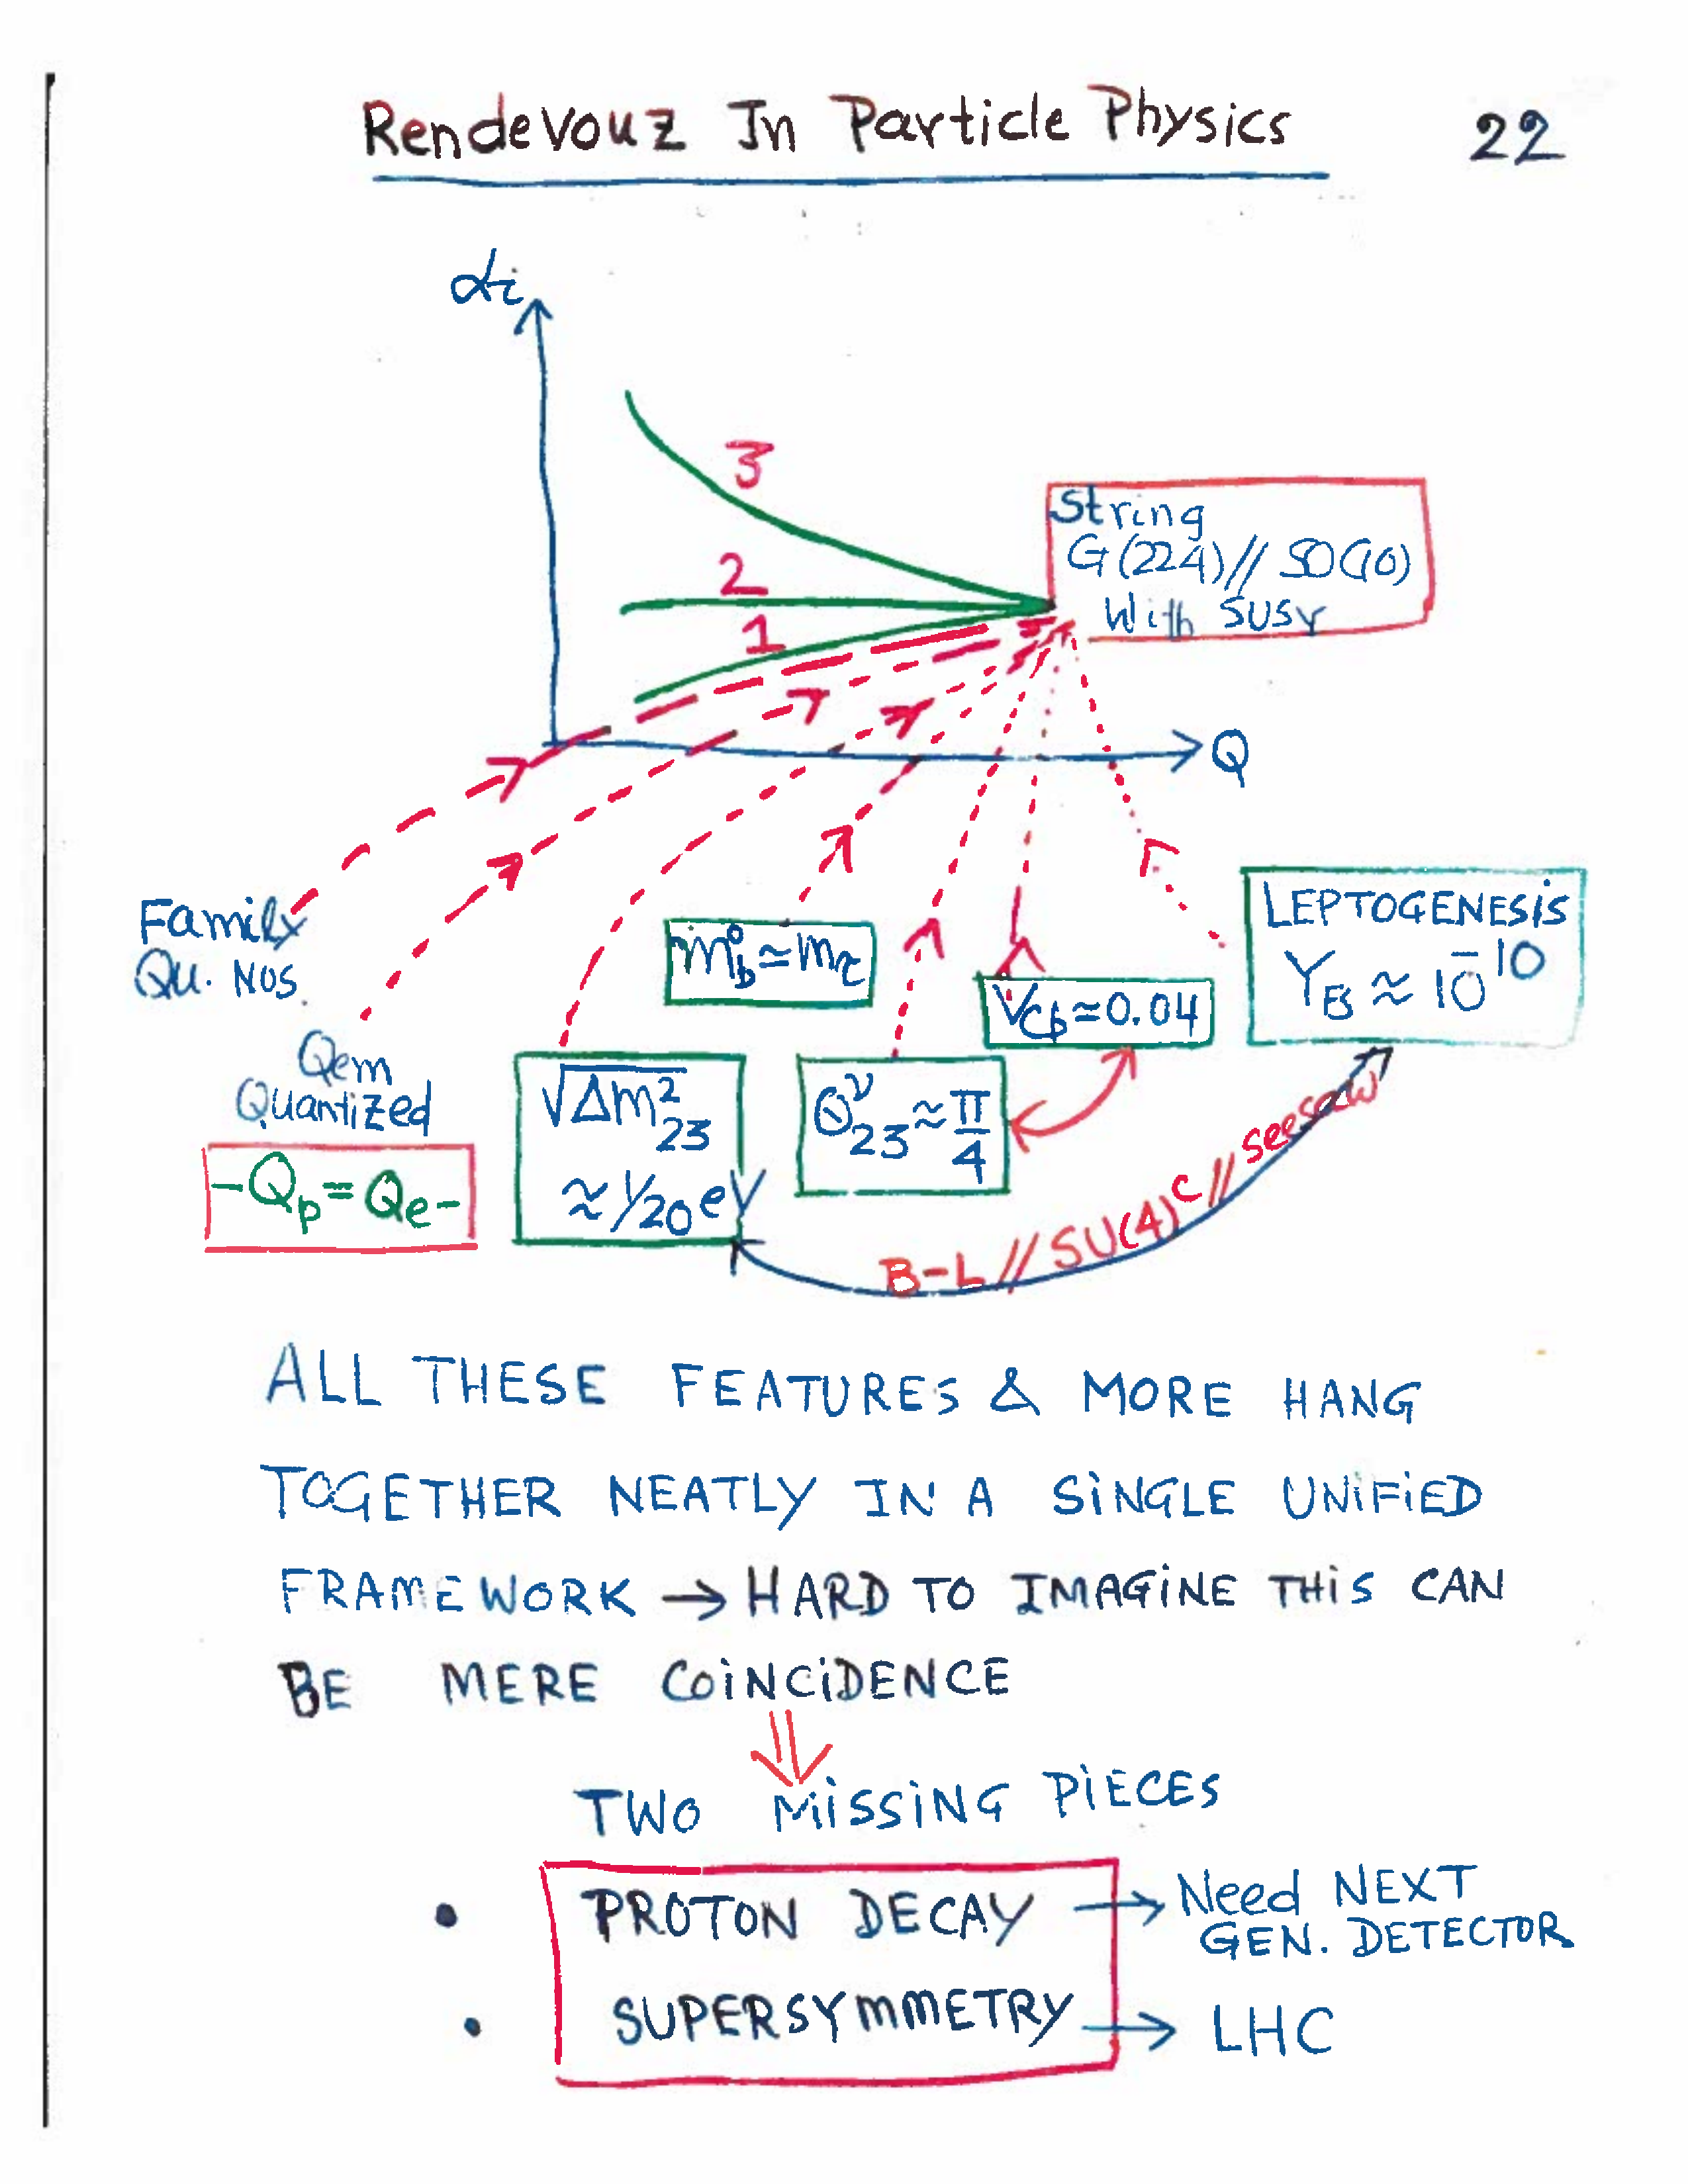 Rendevouz In Particle Physics 22
αi
3
2
1
String
G(224)// SO(10)
With SUSY
Q
Family
Qu. Nos.
Qem
Quantized
-Qp = Qe-
√Δm²23
≈ 1/20 eV
m°b ≃ mτ
Θ^ν23 ≈ π/4
Vcb ≃ 0.04
LEPTOGENESIS
YB ≈ 10^-10
B-L // SU(4)^c // seesaw
ALL THESE FEATURES & MORE HANG
TOGETHER NEATLY IN A SINGLE UNIFIED
FRAMEWORK → HARD TO IMAGINE THIS CAN
BE MERE COINCIDENCE
TWO MISSING PIECES
• PROTON DECAY → Need NEXT
GEN. DETECTOR
• SUPERSYMMETRY → LHC